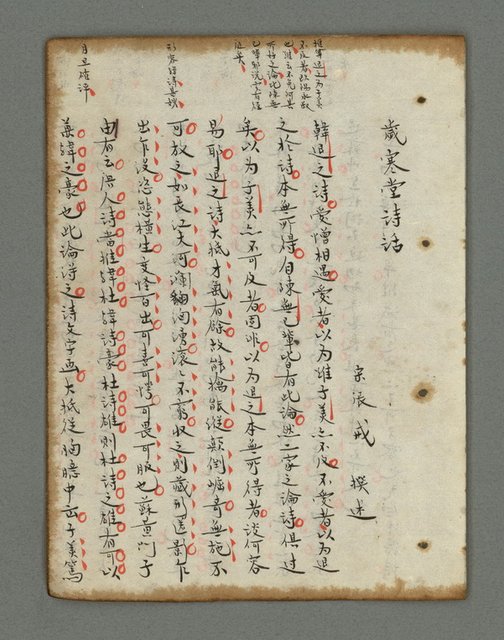 歲寒堂詩話
宋張戒 撰述
韓退之詩愛憎相過愛者以為雖子美亦不及不愛者以為退
之於詩本無所得自陳無己輩皆有此論然二家之論詩俱過
矣以為子美亦不可及者固非以為退之本無所得者談何容
易耶退之詩大抵才氣有餘故能擒能縱顛倒崛奇無施不
可放之如長江大河瀾翻洶湧滾滾不窮收之則藏形匿影乍
出乍沒恣態橫生變怪百出可喜可愕可畏可服也蘇黃門子
由有云唐人詩當推韓杜韓詩豪杜詩雄則杜詩之雄有可以
兼韓之豪也此論得之詩文字畫大抵從胸臆中出子美篤